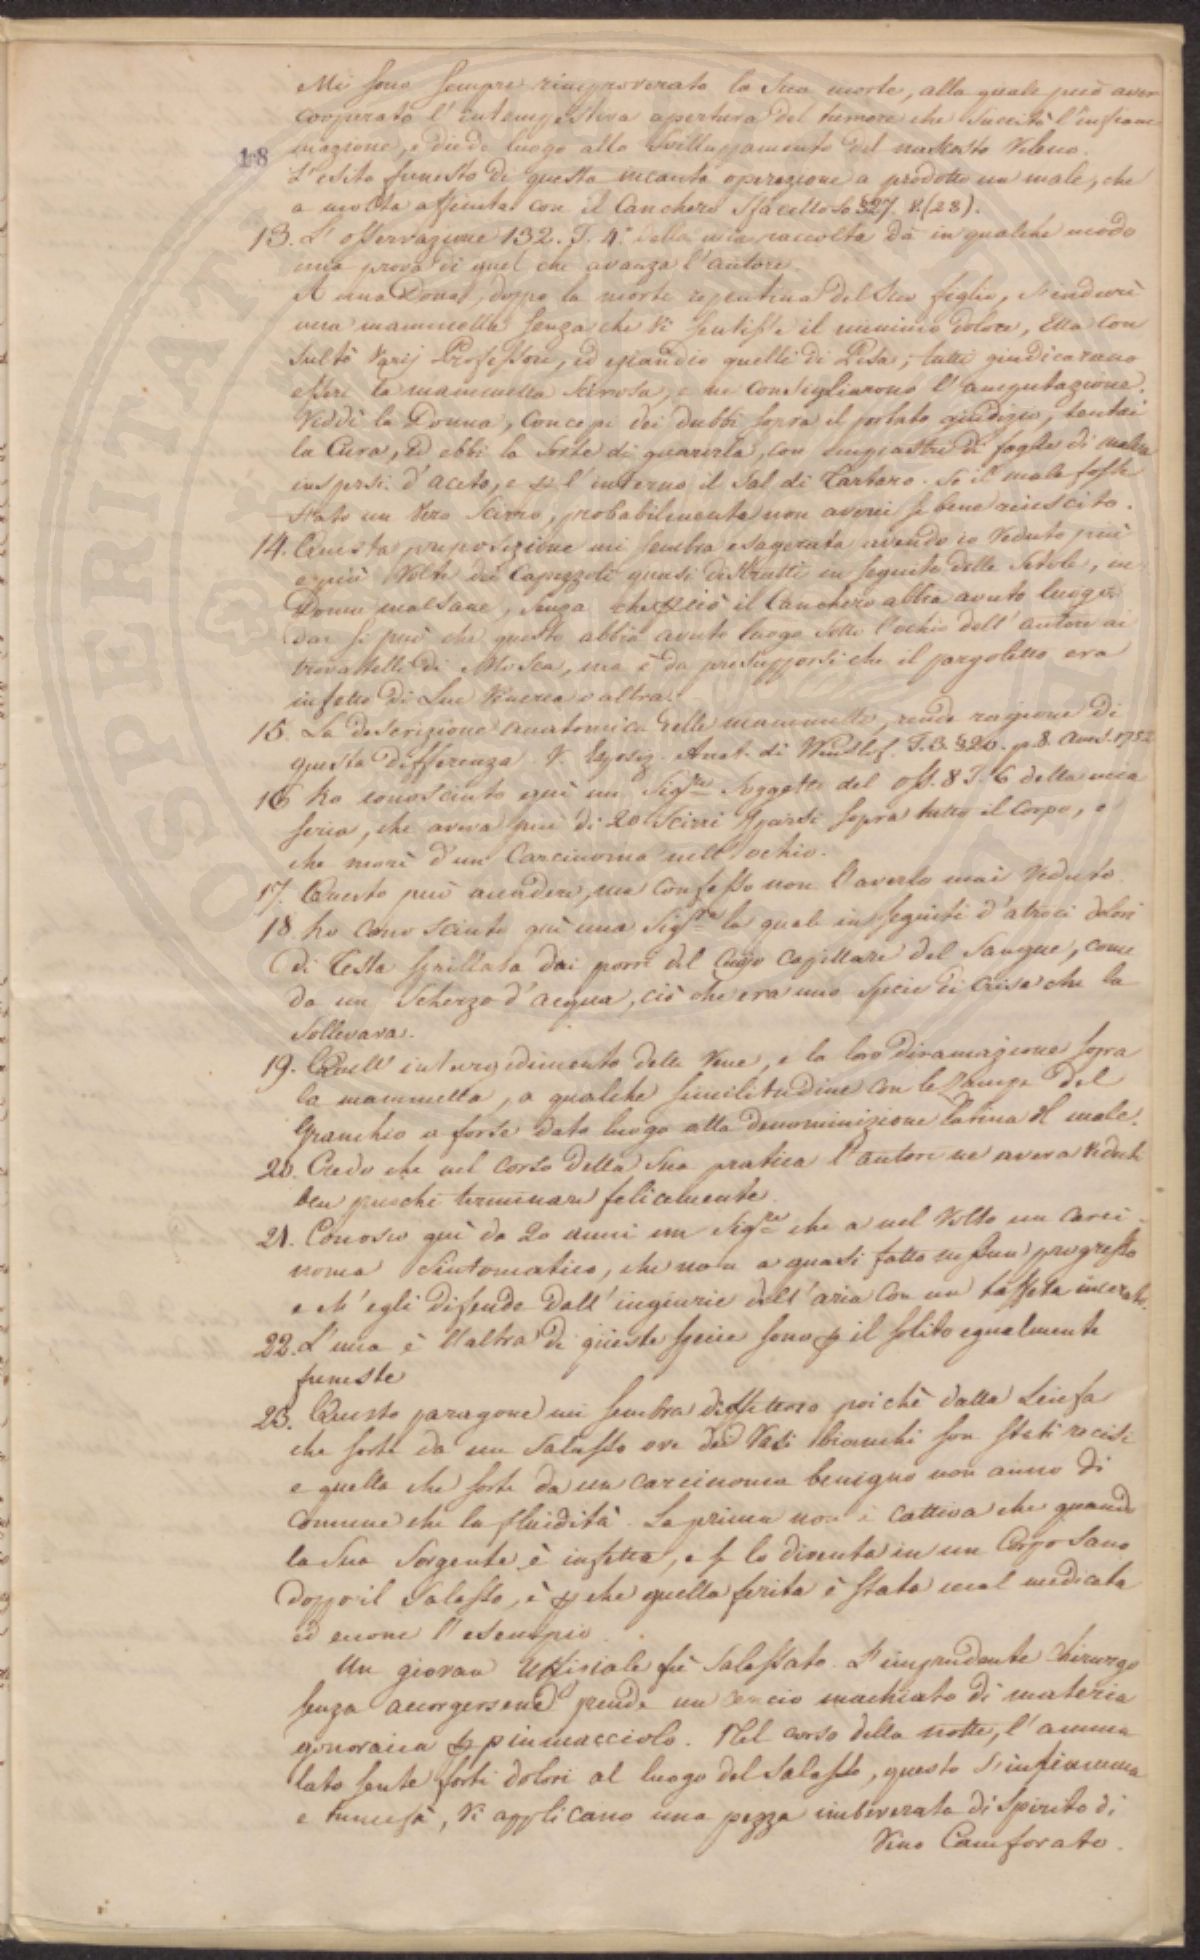 Mi sono sempre rimproverato la sua morte, alla quale può aver
cooperato l'intempestiva apertura del tumore che suscitò l'infiam
mazione, e diede luogo allo sviluppamento del nascosto veleno.
18
L'esito funesto di questa incauta operazione a prodotto un male, che
a molta affinita con il Canchero Sfacelloso §27. V.(28).
13. L'osservazione 132. T. 4.° della mia raccolta dà in qualche modo
una prova di quel che avanza l'autore.
A una Dona, doppo la morte repentina del suo figlio, s'indurì
una mammella senza che vi sentisse il minimo dolore, Ella con
sultò varij Professori, ed eziandio quelli di Pisa; tutti giudicarono
essere la mammella scirrosa, e ne consigliarono l'amputazione.
Viddi la Donna, concepi dei dubbi sopra il portato giudizio, tentai
la Cura, ed ebbi la sorte di guarirla, con empiastri di foglie di malva
inspersi d'aceto, e p l'interno il Sal di Tartaro. Se il male fosse
stato un vero Scirro, probabilmente non averei si bene riuscito.
14. Questa proposizione mi sembra esagerata avendo io veduto più
e più volte dei Capezzoli quasi distrutti in seguito delle Setole, in
Donne malsane, senza che p ciò il Canchero abbia avuto luogo.
Dar si può che questo abbia avuto luogo sotto l'ochio dell'autore ai
trovatelli di Mosca, ma è da presupporsi che il pargoletto era
infetto di Lue Venerea o altra.
15. La descrizione anatomica delle mammelle, rende ragione di
questa differenza. V. Esposiz. Anat. di Winslof. T.3. §20. p 8. Ams. 1752
16 ho conosciuto quì un Sig.re Soggetto del oss. 8 T. 6 della mia
seria, che aveva più di 20 Scirri sparsi sopra tutto il Corpo, e
che morì d'un Carcinoma nell'ochio.
17. Questo può accadere, ma confesso non l'averlo mai veduto.
18. ho conosciuto quì una Sig.ra la quale in seguito d'atroci dolori
di Testa spillava dai porri del Cuojo capillare del Sangue, come
da un Scherzo d'acqua, ciò che era una specie di Crise che la
sollevava.
19. Quell'inturgidimento delle Vene, e la loro diramazione sopra
la mammella, a qualche similitudine con le zampe del
Granchio a forse dato luogo alla denominizione latina del male.
20. Credo che nel corso della sua pratica l'autore ne avera veduti
ben puochi terminare felicemente.
21. Conosco quì da 20 anni un Sig.re che a nel Volto un Carci
noma Sintomatico, che non a quasi fatto nessun progresso
e ch'egli difende dall'ingiurie dell'aria con un taffeta incerato.
22. L'una è l'altra di queste specie sono p il solito egualmente
funeste
23. Questo paragone mi sembra diffettoso poichè dalla Linfa
che sorte da un Salasso ove dei Vasi bianchi son stati recisi
e quella che sorte da un carcinoma benigno non anno di
Comune che la fluidità. La prima non è cattiva che quando
la sua Sorgente è infetta, e se lo diventa in un Corpo Sano
doppo il Salasso, è p che quella ferita è stata mal medicata
ed eccone l'esempio.
Un giovan Uffiziale fù salassato. L'imprudente Chirurgo
senza accorgersene prende un cencio machiato di materia
gonoraica p piumacciolo. Nel corso della notte, l'amma
lato sente forti dolori al luogo del Salasso, questo s'infiamma
e tumefà, Vi applicano una pezza imbeverata di Spirito di
Vino Camforato.